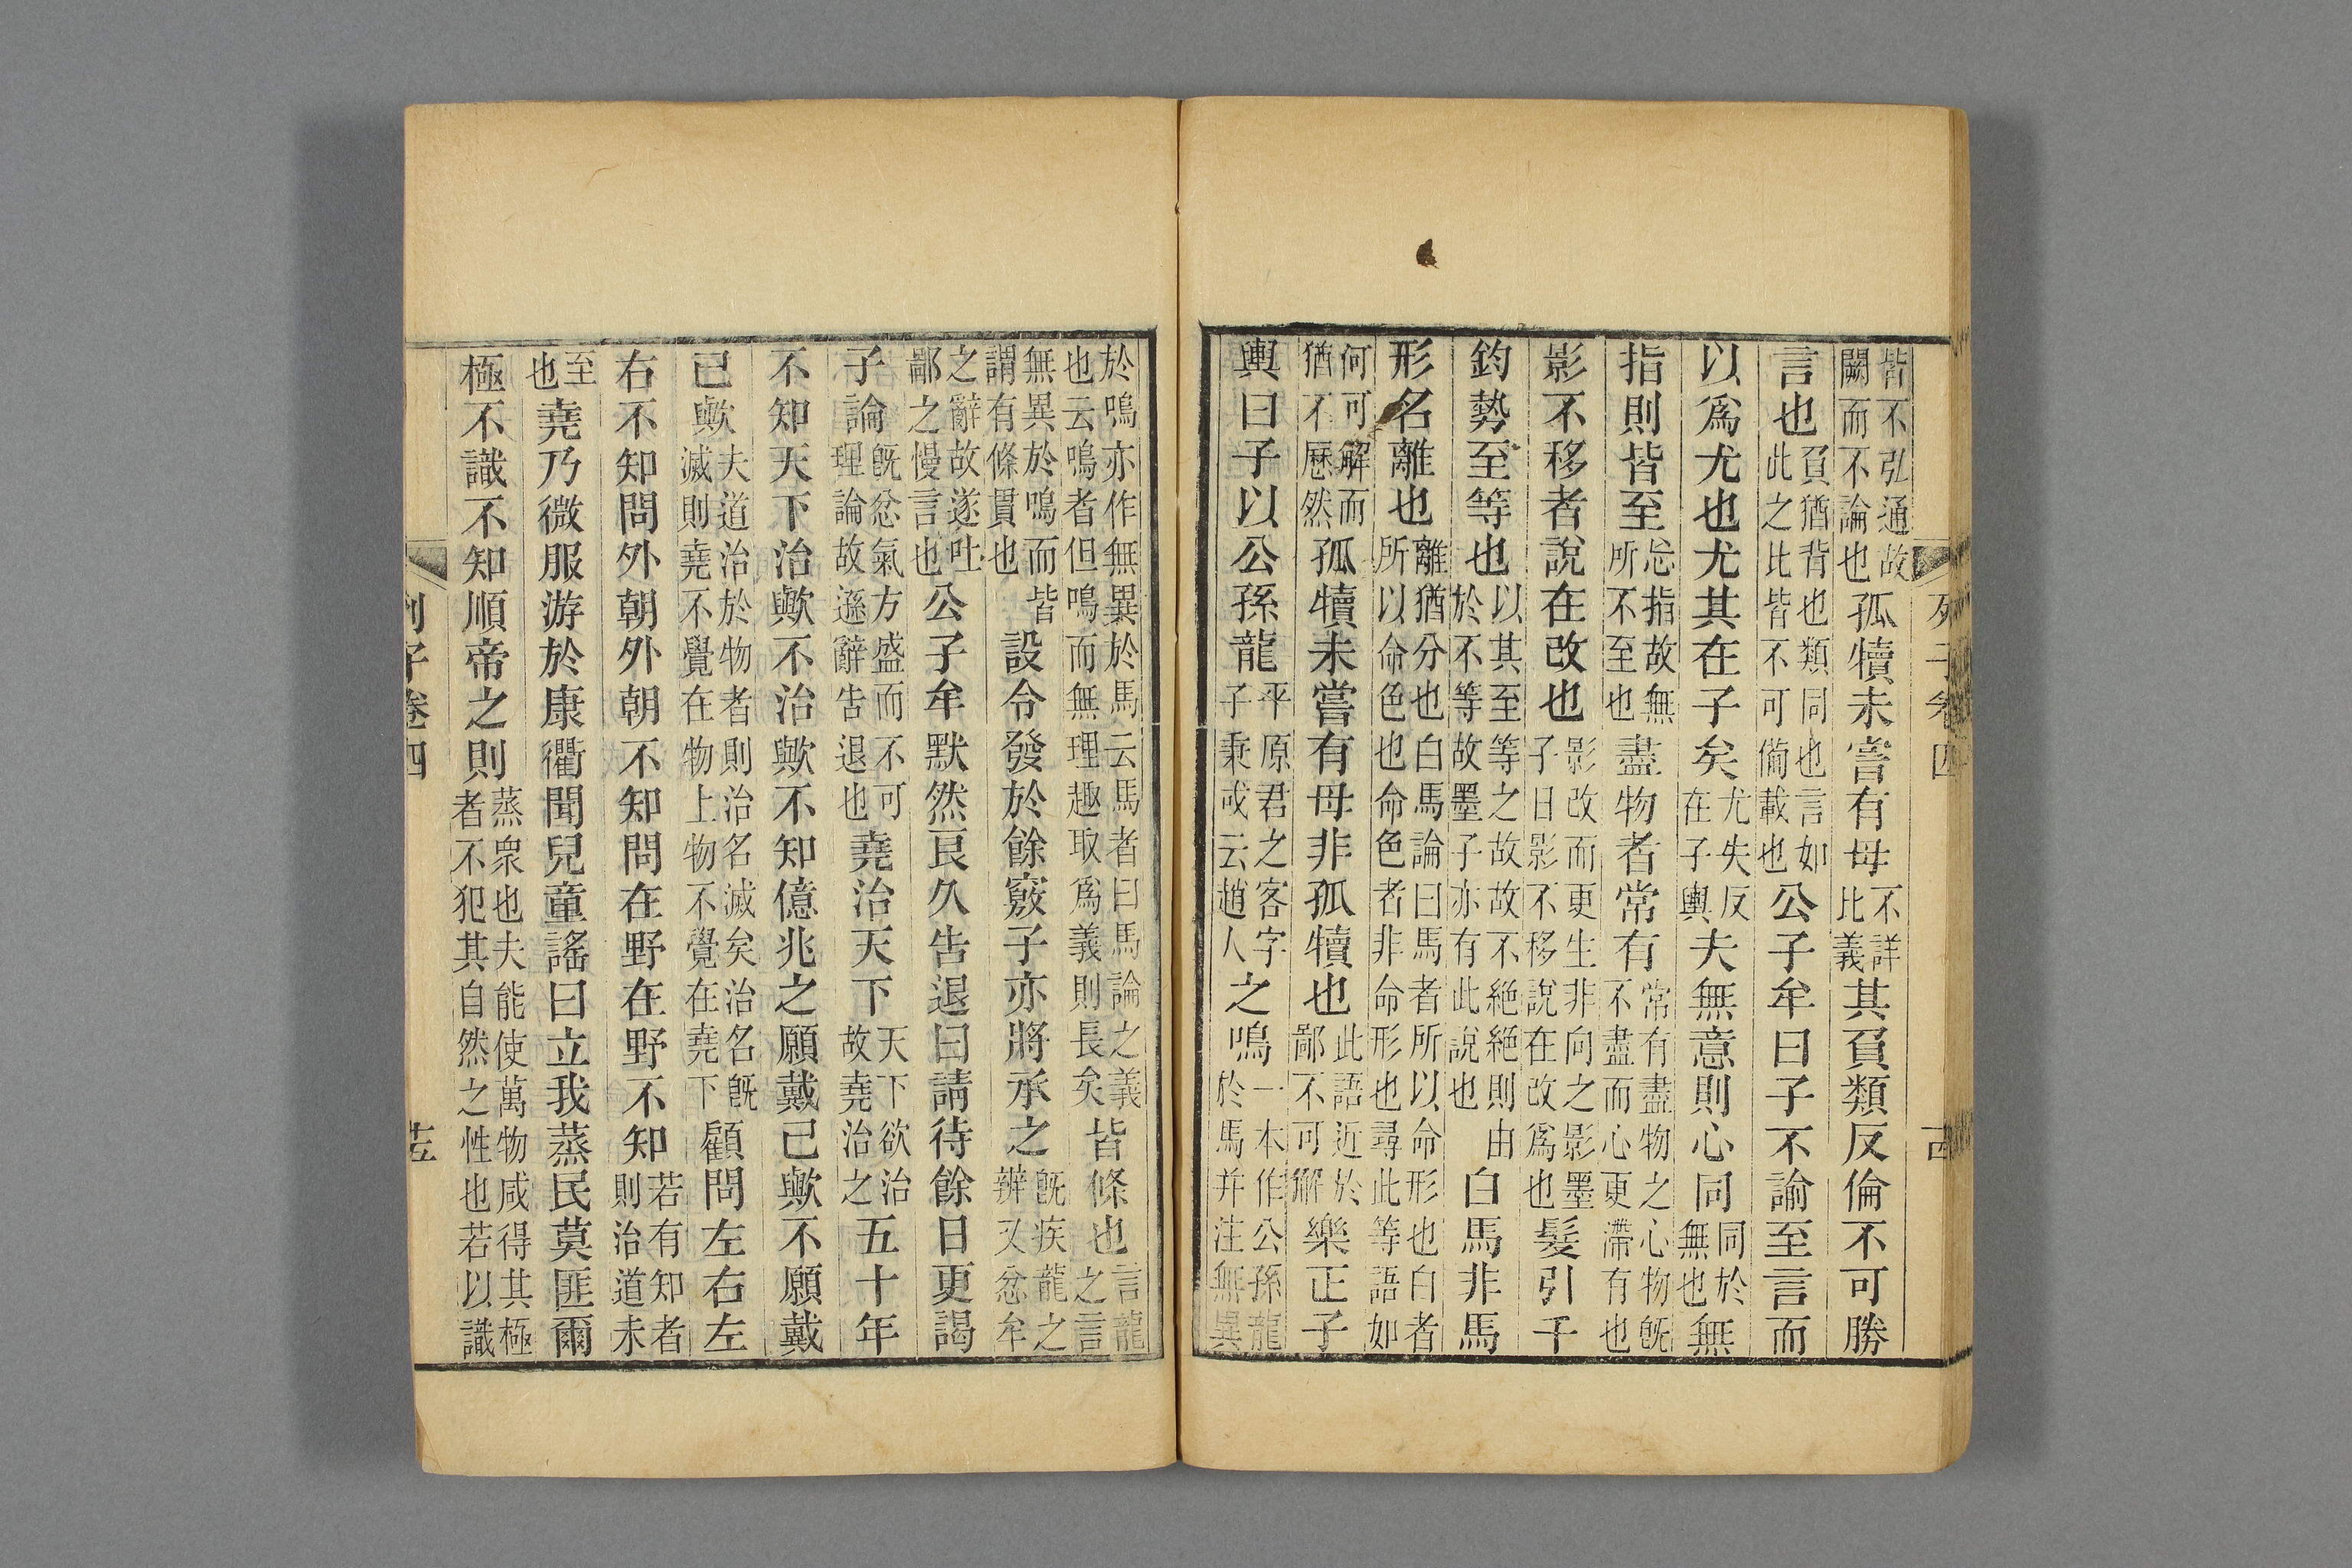 皆不弘通故
闕而不論也
孤犢未嘗有母
不詳
比義
其負類反倫不可勝
言也
負猶背也類同也言如
此之比皆不可備載也
公子牟曰子不諭至言而
以爲尤也尤其在子矣
尤失反
在子輿
夫無意則心同
同於
無也
無
指則皆至
忘指故無
所不至也
盡物者常有
常有盡物之心物旣
不盡而心更滯有也
影不移者說在改也
影改而更生非向之影墨
子曰影不移說在改爲也
髮引千
鈞勢至等也
以其至等之故故不絕絕則由
於不等故墨子亦有此說也
白馬非馬
形名離也
離猶分也白馬論曰馬者所以命形也白者
所以命色也命色者非命形也尋此等語如
何可解而
猶不歷然
孤犢未嘗有母非孤犢也
此語近於
鄙不可解
樂正子
輿曰子以公孫龍
平原君之客字
子秉或云趙人
之鳴
一本作公孫龍
於馬并注無異
列子卷四
於鳴亦作無異於馬云馬者曰馬論之義
也云鳴者但鳴而無理趣取爲義則長矣
皆條也
言龍
之言
無異於鳴而皆
謂有條貫也
設令發於餘竅子亦將承之
旣疾龍之
辨又忿牟
之辭故遂吐
鄙之慢言也
公子牟默然良久告退曰請待餘日更謁
子論
旣忿氣方盛而不可
理論故遜辭告退也
堯治天下
天下欲治
故堯治之
五十年
不知天下治歟不治歟不知億兆之願戴己歟不願戴
已歟
夫道治於物者則治名滅矣治名旣
滅則堯不覺在物上物不覺在堯下
顧問左右左
右不知問外朝外朝不知問在野在野不知
若有知者
則治道未
至
也
堯乃微服游於康衢聞兒童謠曰立我蒸民莫匪爾
極不識不知順帝之則
蒸衆也夫能使萬物咸得其極
者不犯其自然之性也若以識
列子卷四